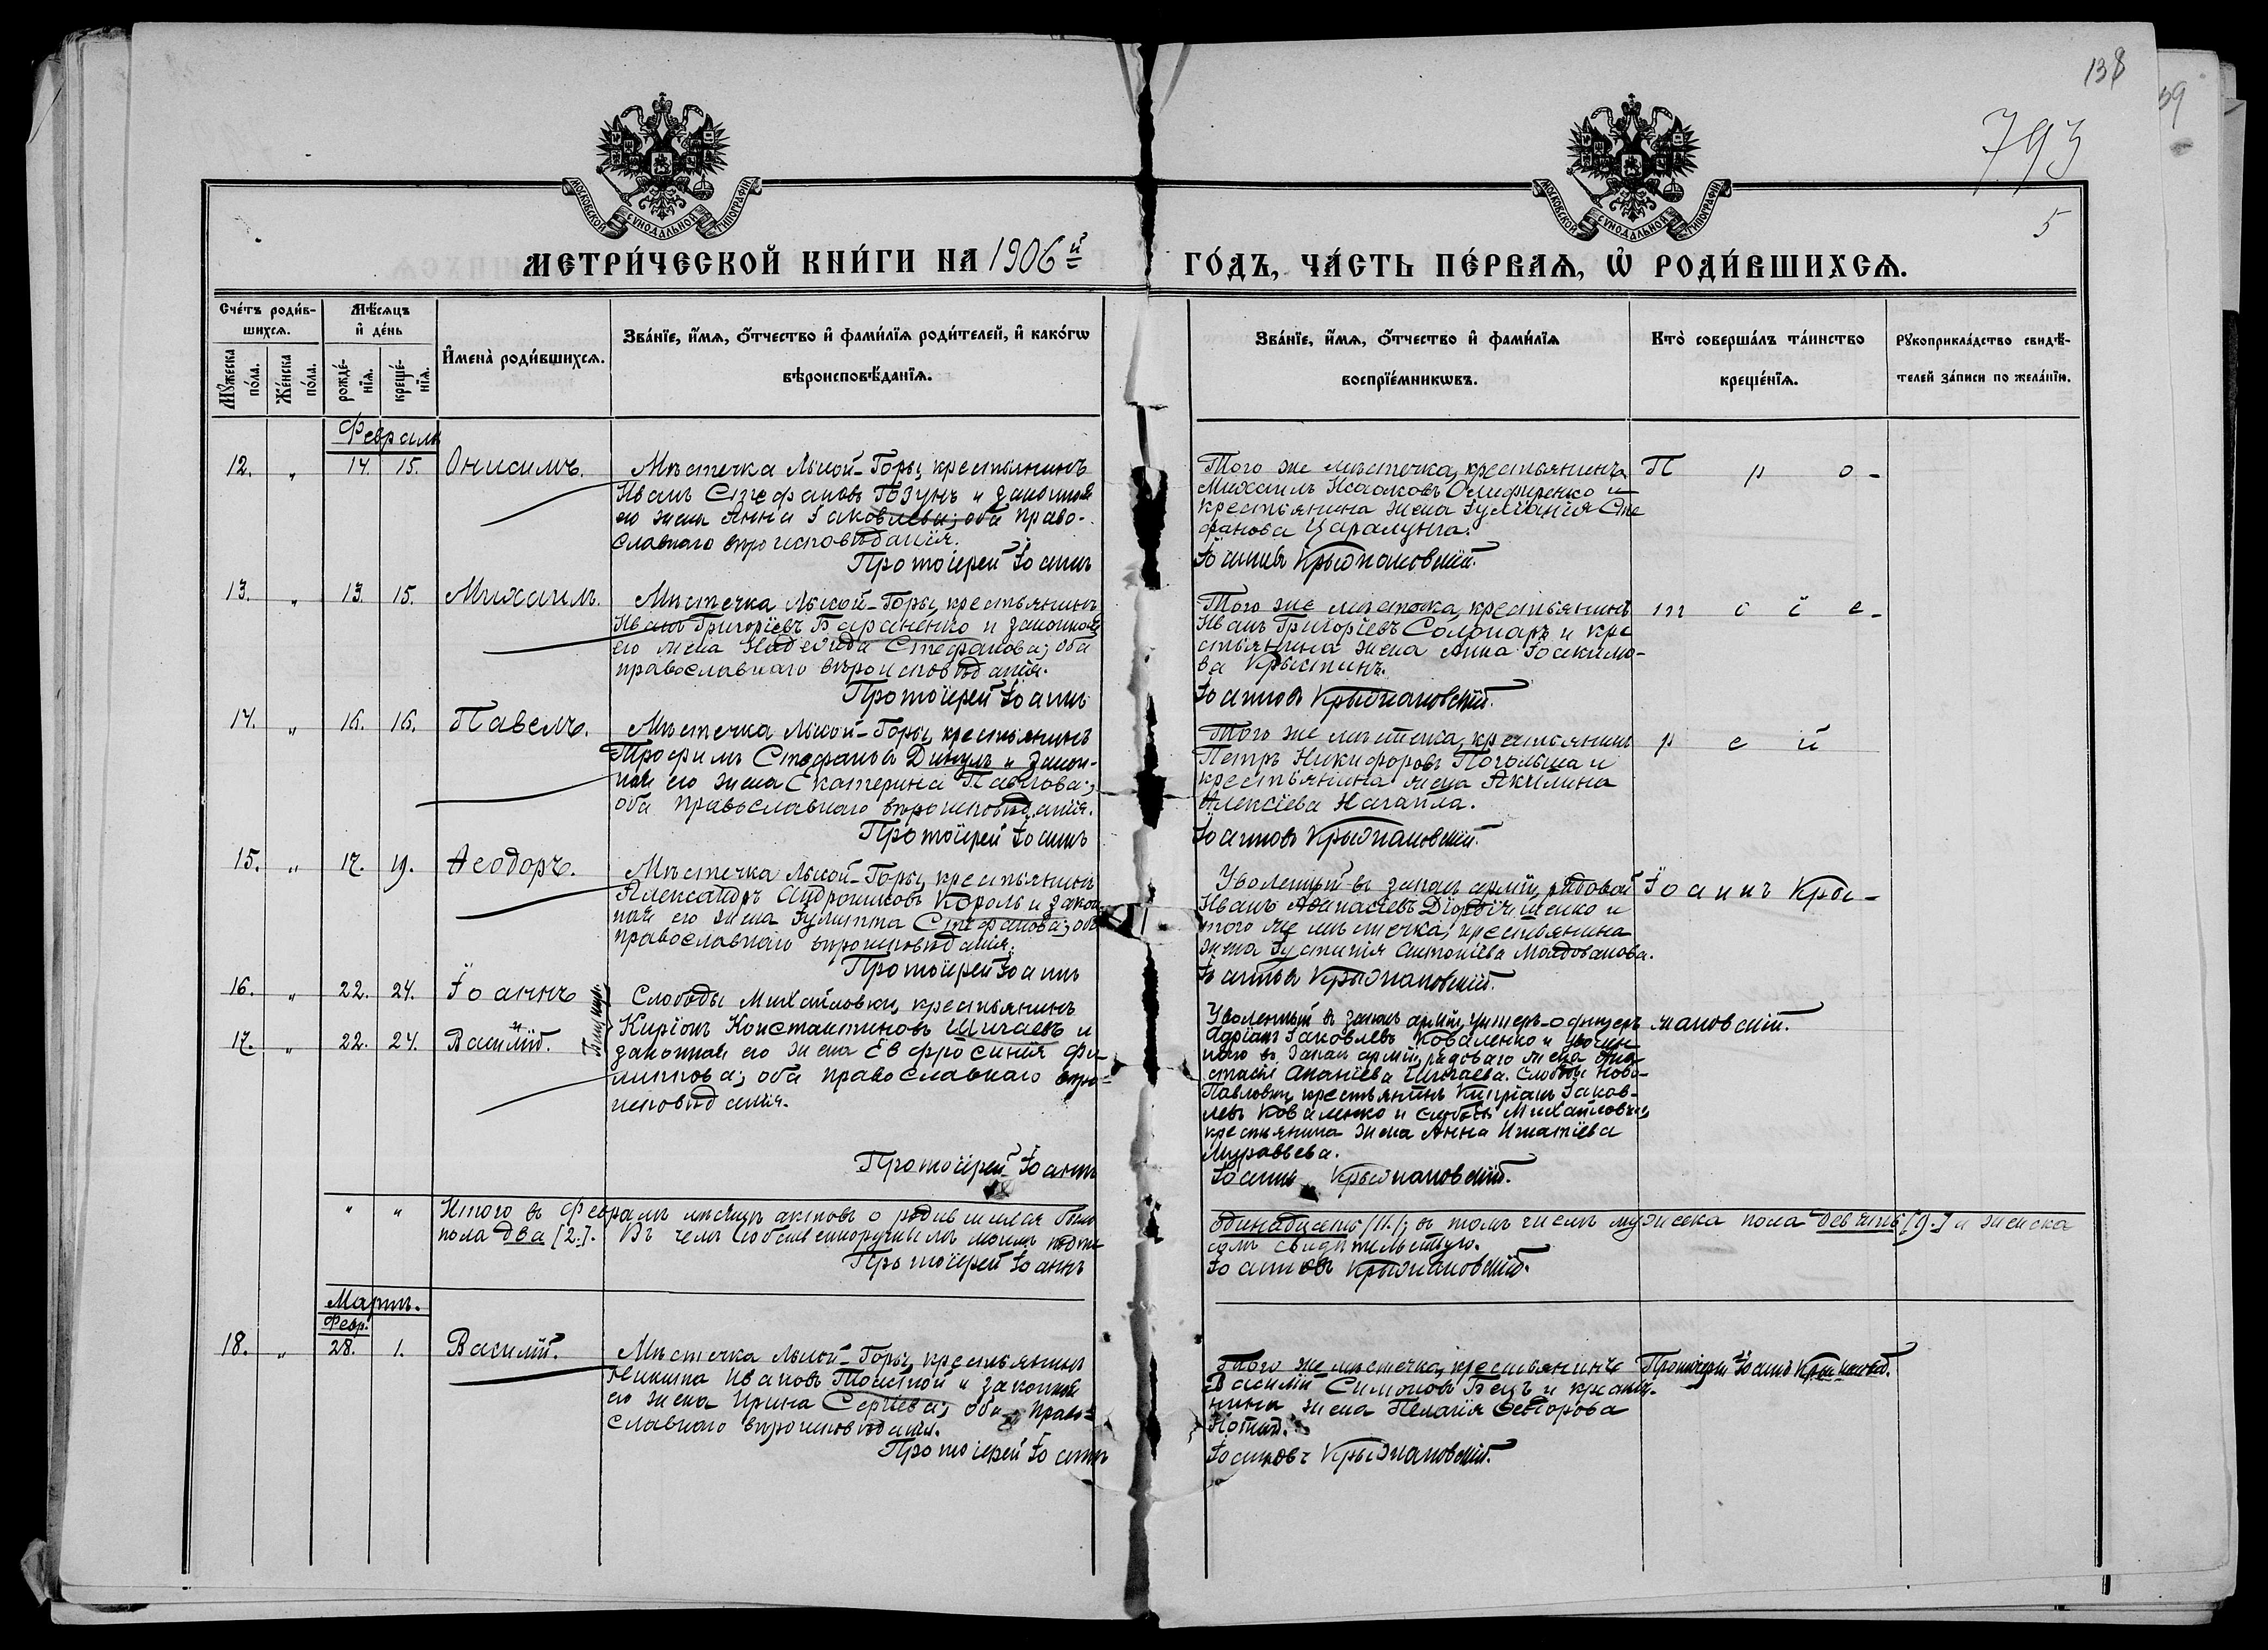 138
39
793
5
МОСКОВСКОЙ СѴНОДАЛЬНОЙ ТИПОГРАФІИ
МОСКОВСКОЙ СѴНОДАЛЬНОЙ ТИПОГРАФІИ
МЕТРИ́ЧЕСКОЙ КНИ́ГИ НА 1906й ГО́ДЪ, ЧА́СТЬ ПЕ́РВАѦ, Ѡ҆ РОДИ́ВШИХСѦ.
Сче́тъ роди́в-
шихсѧ.
Мꙋ́жеска по́ла.
Же́нска по́ла.
Мѣ́сѧцъ
и҆ де́нь
рожде́-
нїѧ.
креще́-
нїѧ.
И҆мена̀ роди́вшихсѧ.
Зва́нїе, и҆́мѧ, ѻ҆́тчество и҆ фами́лїѧ роди́телей, и҆ како́гѡ
вѣроисповѣ́данїѧ.
Зва́нїе, и҆́мѧ, ѻ҆́тчество и҆ фами́лїѧ
воспрїе́мникѡвъ.
Кто̀ соверша́лъ та́инство
креще́нїѧ.
Рꙋкоприкла́дство свидѣ́-
телей за́писи по жела́нїю.
Февраль
12. „ 14. 15. Онисимъ.
Мѣстечка Лысой-Горы, крестьянинъ
Иванъ Стефановъ Бзунъ и законная
его жена Анна Іаковлева; оба право-
славнаго вѣроисповѣданія.
Протоіерей Іоаннъ
Того же мѣстечка, крестьянинъ
Михаилъ Исааковъ Олиференко и
крестьянина жена Іуліанія Сте
фанова Царалунга.
Іоанновъ Крыжановскій.
П р о-
13. „ 13. 15. Михаилъ.
Мѣстечка Лысой-Горы, крестьянинъ
Иванъ Григоріевъ Бараненко и законная
его жена Надежда Стефанова; оба
православнаго вѣроисповѣданія.
Протоіерей Іоаннъ
Того же мѣстечка, крестьянинъ
Иванъ Григоріевъ Солонаръ и кре
стьянина жена Анна Іоакимо-
ва Крыстинъ.
Іоанновъ Крыжановскій.
т о і е-
14. „ 16. 16. Павелъ.
Мѣстечка Лысой-Горы, крестьянинъ
Трофимъ Стефановъ Дикулъ и закон-
ная его жена Екатерина Павлова;
оба православнаго вѣроисповѣданія.
Протоіерей Іоаннъ
Того же мѣстечка, крестьянинъ
Петръ Никифоровъ Погольша и
крестьянина жена Акилина
Алексіева Нагайла.
Іоанновъ Крыжановскій.
р е й
15. „ 17. 19. Ѳеодоръ.
Мѣстечка Лысой-Горы, крестьянинъ
Александръ Андрониковъ Король и закон-
ная его жена Іулитта Стефанова; оба
православнаго вѣроисповѣданія.
Протоіерей Іоаннъ
Уволенный въ запасъ арміи, рядовой
Иванъ Аѳанасіевъ и
того же мѣстечка, крестьянина
жена Іустинія Антоніева Молдованова.
Іоанновъ Крыжановскій.
Іоаннъ Кры-
16. „ 22. 24. Іоаннъ
17. „ 22. 24. и Василій.
Близнецы.
Слободы Михайловки, крестьянинъ
Киріонъ Константиновъ Шигаевъ и
законная его жена Евфросинія Фи-
липпова; оба православнаго вѣро-
исповѣданія.
Протоіерей Іоаннъ
Уволенный въ запасъ арміи, унтеръ-офицеръ
Адріанъ Іаковлевъ Коваленко и уволен-
наго въ запасъ арміи, рядового жена Ана-
стасія Ананіева Шигаева. Слободы Ново-
Павловки, крестьянинъ Кипріанъ Іаков-
левъ Коваленко и слободы Михайловки,
крестьянина жена Анна Игнатіева
Муравьева.
Іоаннъ Крыжановскій.
жановскій.
„ „ Итого въ Февралѣ мѣсяцѣ актовъ о родившихся было одиннадцать [11.]; въ томъ числѣ мужеска пола девять [9.] и женска
пола два [2.]. Въ чемъ собственноручнымъ моимъ подпи-
сомъ свидѣтельствую.
Протоіерей Іоаннъ
Іоанновъ Крыжановскій.
Мартъ.
Февр.
18. „ 28. 1. Василій.
Мѣстечка Лысой-Горы, крестьянинъ
Никита Ивановъ Толстой и законная
его жена Ирина Сергіева; оба право-
славнаго вѣроисповѣданія.
Протоіерей Іоаннъ
Того же мѣстечка, крестьянинъ
Василій Симоновъ Бецъ и крестья-
нина жена Пелагія Ѳеодорова
Іоанновъ Крыжановскій.
Протоіерей Іоаннъ Крыжановскій.